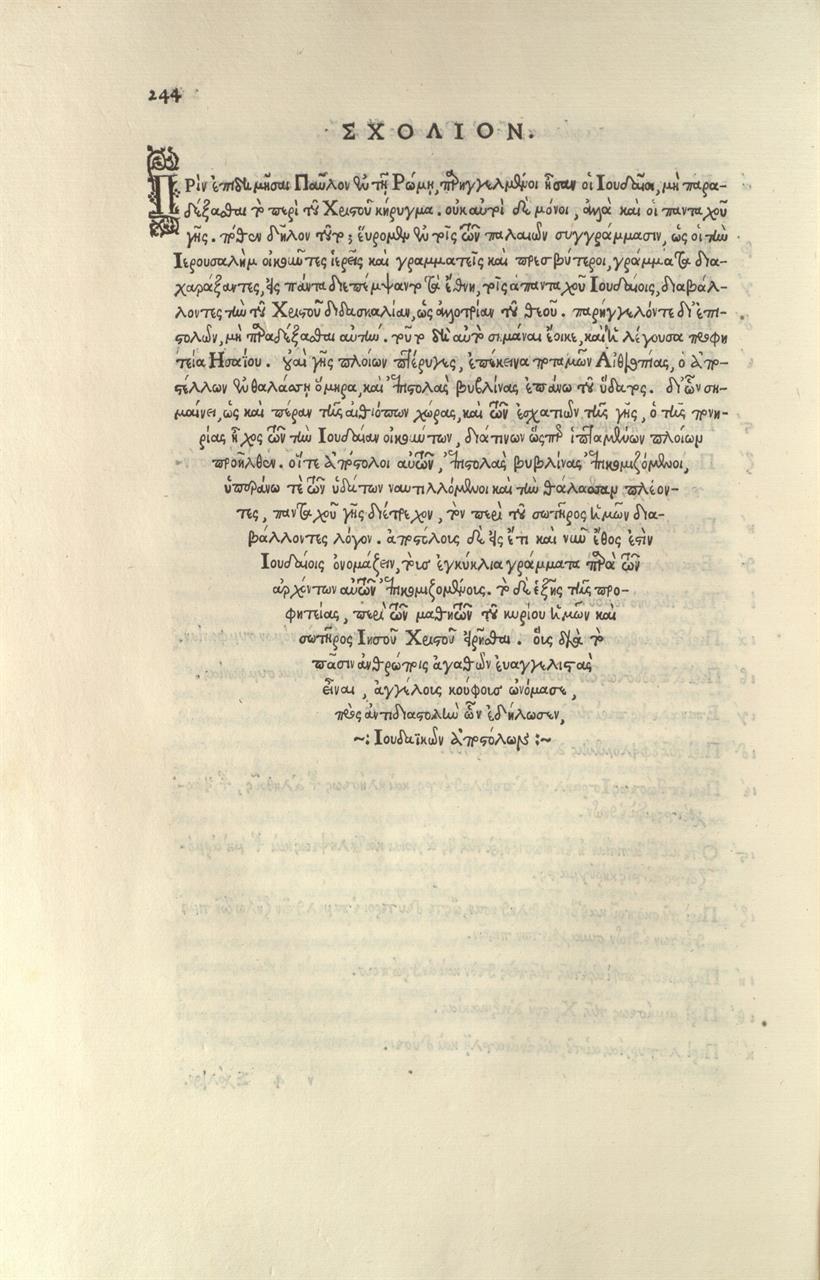 244
ΣΧΟΛΙΟΝ.
ΠΡὶν ἐπιδημῆσαι Παῦλον ἐν τῇ Ρώμῃ, παρηγγελμένοι ἦσαν οἱ Ιουδαῖοι, μὴ παρα-
δέξασθαι τὸ περὶ τοῦ Χριστοῦ κήρυγμα. οὐκ αὐτοὶ δὲ μόνοι, ἀλλὰ καὶ οἱ πανταχοῦ
γῆς. πόθεν δῆλον τοῦτο; εὕρομεν ἐν τοῖς τῶν παλαιῶν συγγράμμασιν, ὡς οἱ τὴν
Ιερουσαλὴμ οἰκοῦντες ἱερεῖς καὶ γραμματεῖς καὶ πρεσβύτεροι, γράμματα δια-
χαράξαντες, εἰς πάντα διεπέμψαντο τὰ ἔθνη, τοῖς ἁπανταχοῦ Ιουδαίοις, διαβάλ-
λοντες τὴν τοῦ Χριστοῦ διδασκαλίαν, ὡς ἀλλοτρίαν τοῦ θεοῦ. παρήγγελόν τε δι' ἐπι-
στολῶν, μὴ παραδέξασθαι αὐτήν. τοῦτο δὴ αὐτὸ σημάναι ἔοικε, καὶ ἡ λέγουσα προφη
τεία Ησαΐου. οὐαὶ γῆς πλοίων πτέρυγες, ἐπέκεινα ποταμῶν Αἰθιοπίας, ὁ ἀπο-
στέλλων ἐν θαλάσσῃ ὅμηρα, καὶ ἐπιστολὰς βυβλίνας ἐπάνω τοῦ ὕδατος. δι' ὧν ση-
μαίνει, ὡς καὶ πέραν τῆς αἰθιόπων χώρας, καὶ τῶν ἐσχατιῶν τῆς γῆς, ὁ τῆς πονη-
ρίας ἦχος τῶν τὴν Ιουδαίαν οἰκούντων, διά τινων ὥσπερ ἱπταμένων πλοίων
προῆλθεν. οἵτε ἀπόστολοι αὐτῶν, ἐπιστολὰς βυβλίνας ἐπικομιζόμενοι,
ὑπεράνω τε τῶν ὑδάτων ναυτιλλόμενοι καὶ τὴν θάλασσαν πλέον-
τες, πανταχοῦ γῆς διέτρεχον, τὸν περὶ τοῦ σωτῆρος ἡμῶν δια-
βάλλοντες λόγον. ἀποστόλους δὲ εἰς ἔτι καὶ νῦν ἔθος ἐστὶν
Ιουδαίοις ὀνομάζειν, τοὺς ἐγκύκλια γράμματα παρὰ τῶν
ἀρχόντων αὐτῶν ἐπικομιζομένους. τὸ δὲ ἑξῆς τῆς προ-
φητείας, περὶ τῶν μαθητῶν τοῦ κυρίου ἡμῶν καὶ
σωτῆρος Ιησοῦ Χριστοῦ εἰρῆσθαι. οἷς διὰ τὸ
πᾶσιν ἀνθρώποις ἀγαθῶν εὐαγγελιστὰς
εἶναι, ἀγγέλοις κούφοις ὠνόμασε,
πρὸς ἀντιδιαστολὴν ὧν ἐδήλωσεν,
~: Ιουδαϊκῶν ἀποστόλων :~